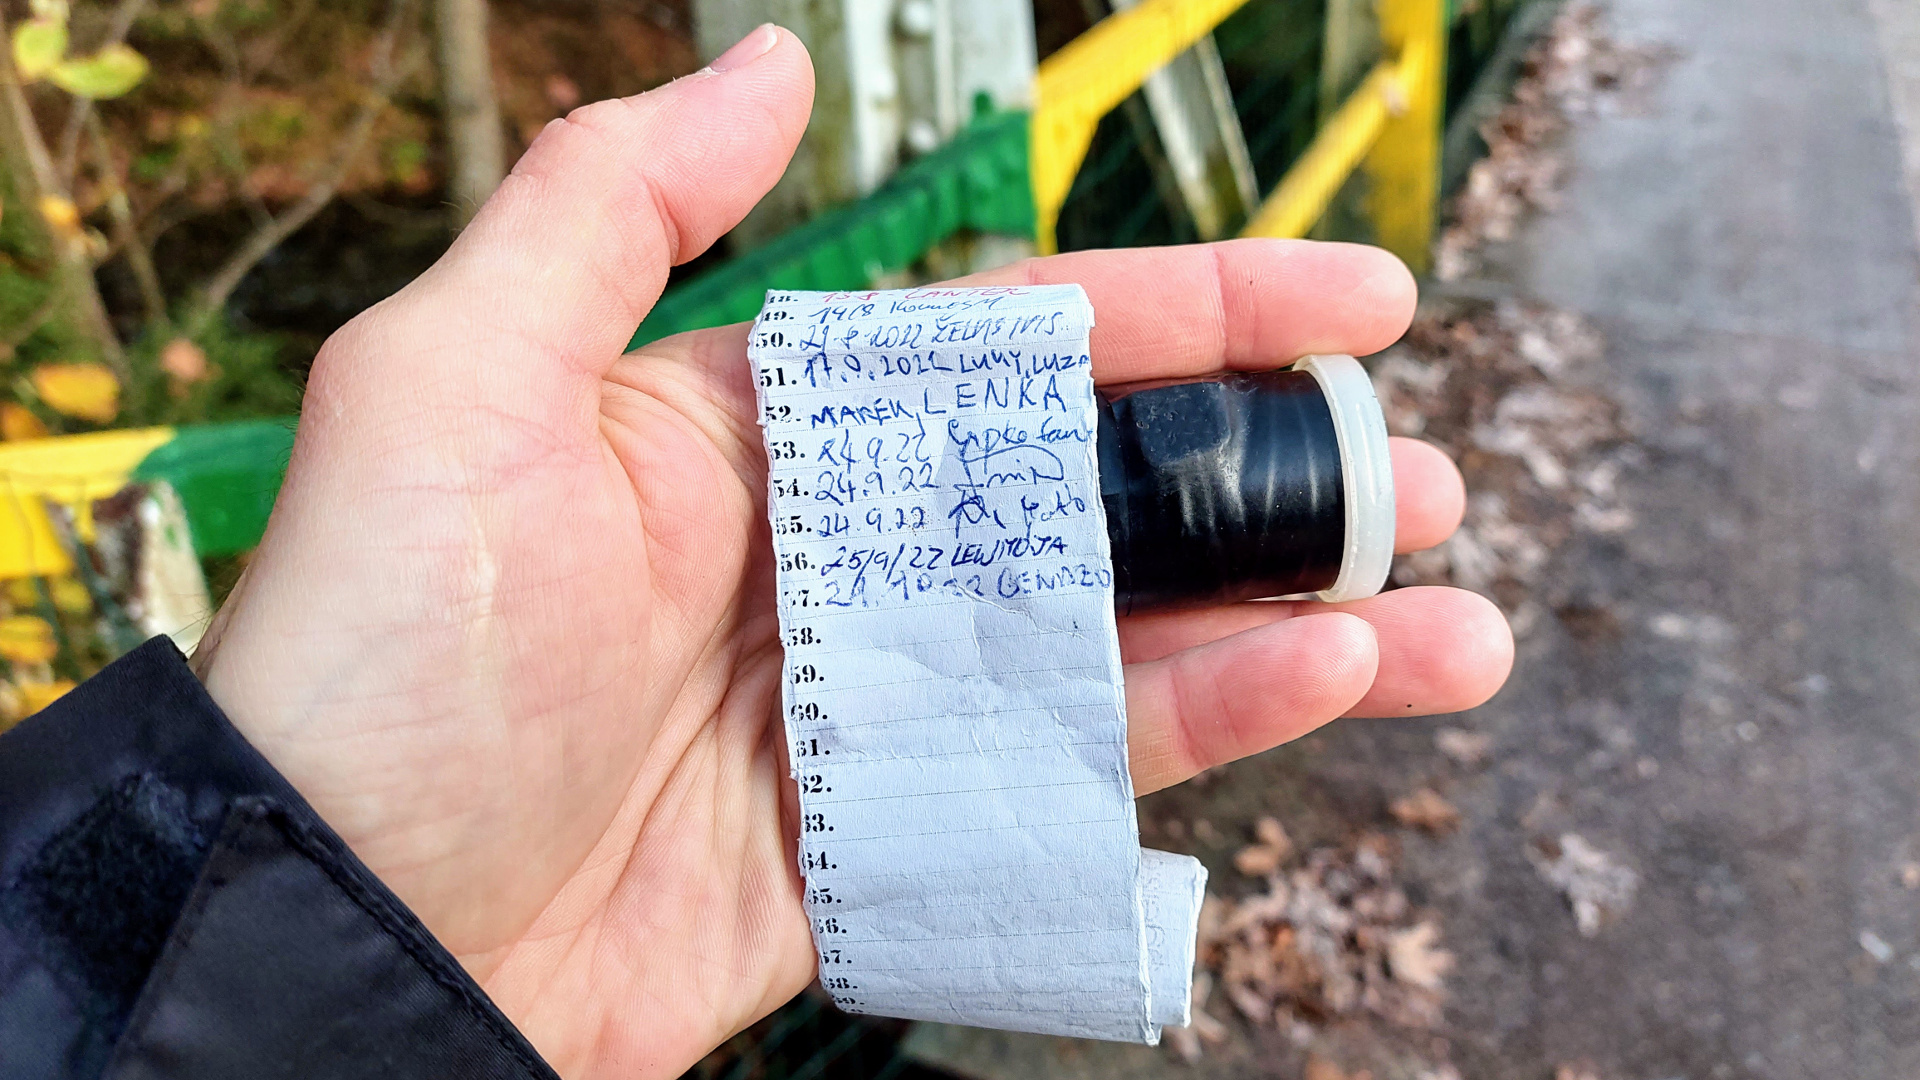 48. 13.8. CANTER
49. 14/8
50. 21.8.2022
51. 17.9.2022 LUKY, LUZA
52. MAREK, LENKA
53. 24.9.22
54. 24.9.22
55. 24.9.22
56. 25/9/22 LEWMOJA
57. 21.10.22 BENDZO
58.
59.
60.
61.
62.
63.
64.
65.
66.
67.
68.
69.